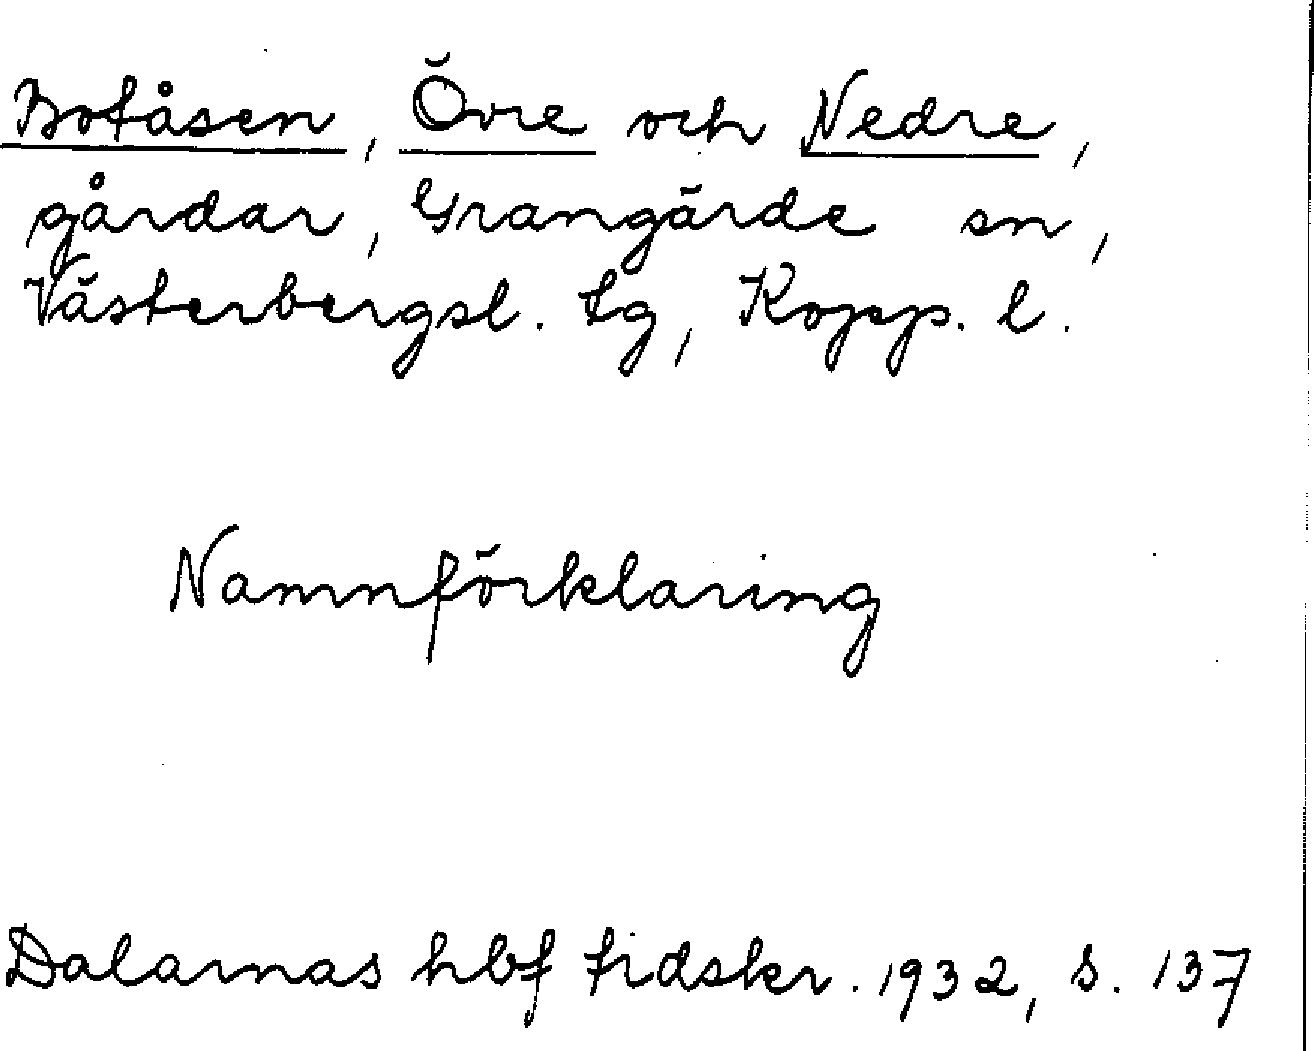 Botåsen, Övre och Nedre,
gårdar, Grangärde sn,
Västerbergsl. tg, Kopp. l.
Namnförklaring
Dalarnas hbf tidskr. 1932, s. 137